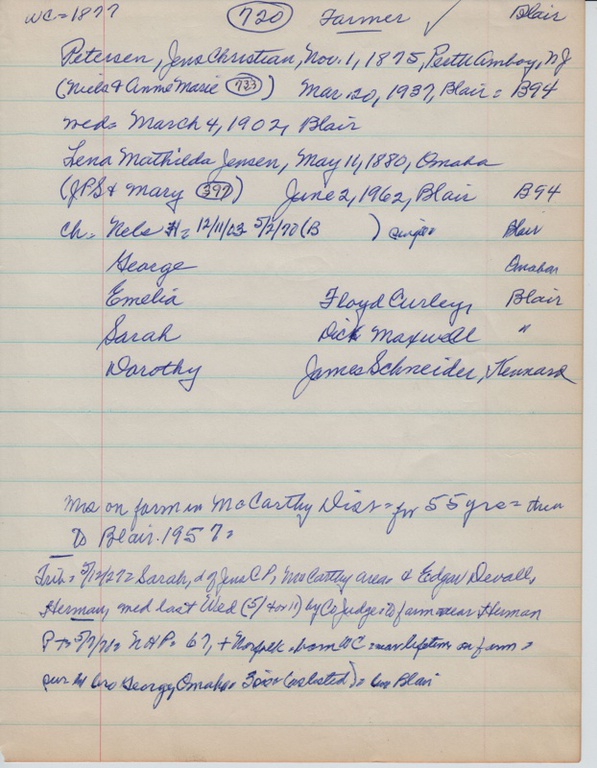 WC = 1877 720 Farmer ✓ Blair
Petersen, Jens Christian, Nov. 1, 1875, Perth Amboy, NJ
(Niels & Anne Marie 733) Mar. 20, 1937, Blair = B94
med = March 4, 1902, Blair
Lena Mathilda Jensen, May 11, 1880, Omaha
(JPS & Mary 397) June 2, 1962, Blair B94
Ch = Nels H = 12/11/03 5/2/70 (B ) single Blair
George Omaha
Emelia Floyd Curley, Blair
Sarah Dick Maxwell "
Dorothy James Schneider, Kennard
Mrs on farm in McCarthy Dist = for 55 yrs = then
to Blair. 1957 =
Trib = 5/12/27 = Sarah, d of Jens C P, McCarthy area = & Edgar Devall,
Herman, med last Wed (5/4 or 11) by Co Judge = To farm near Herman
= NHP = 67, + Norfolk = born WC = on farm =
sur by bro George, Omaha = 3 sis (as listed) = Blair